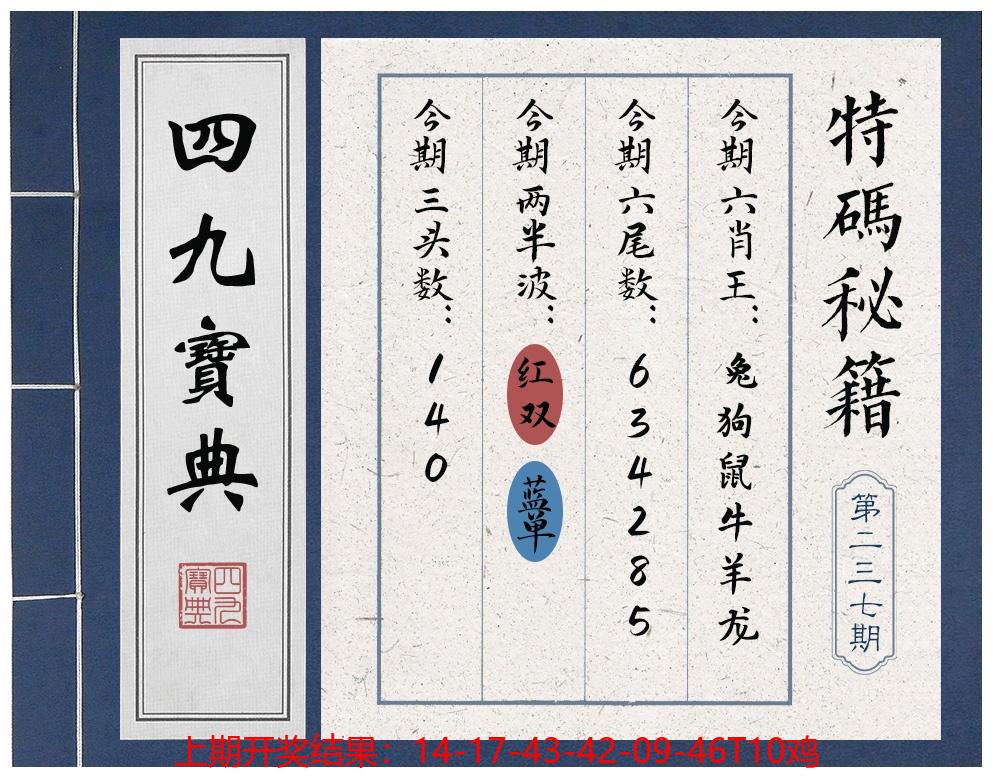 特碼秘籍
第二三七期
今期六肖王：兔狗鼠牛羊龙
今期六尾数：634285
今期两半波：红双 蓝单
今期三头数：140
四九寶典
四九寶典
上期开奖结果：14-17-43-42-09-46T10鸡